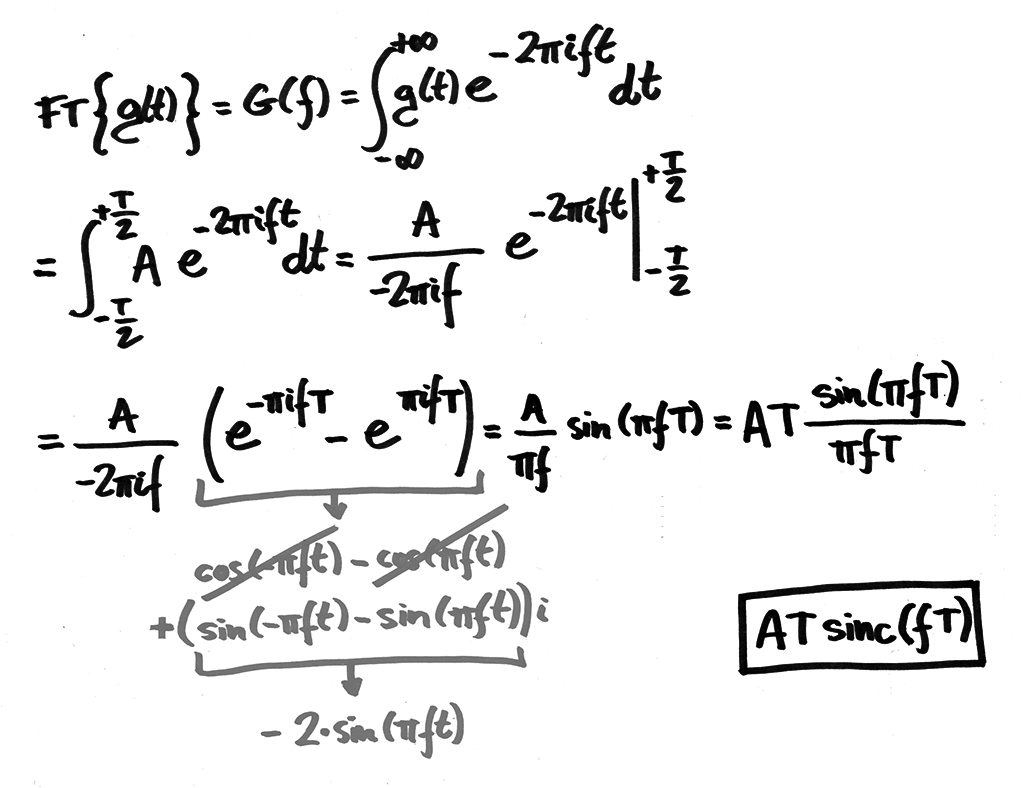 FT{g(t)} = G(f) = ∫_{-∞}^{+∞} g(t) e^{-2πift} dt
= ∫_{-T/2}^{+T/2} A e^{-2πift} dt = A/(-2πif) e^{-2πift} |_{-T/2}^{+T/2}
= A/(-2πif) (e^{-πifT} - e^{πifT}) = A/(πf) sin(πfT) = AT sin(πfT)/(πfT)
cos(-πft) - cos(πft)
+(sin(-πft) - sin(πft))i
AT sinc(fT)
- 2·sin(πft)